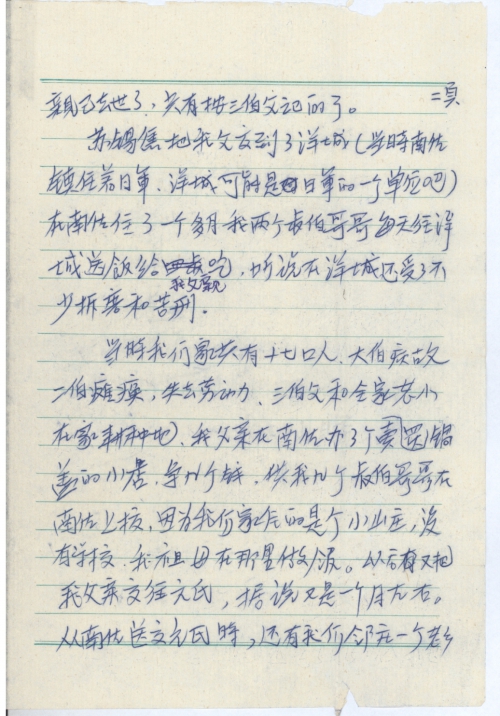 亲已去世了，只有按三伯父记的了。
二页
苏锡焦把我父交到了洋城（当时南佐
镇住着日军，洋城可能是日军的一个单位吧）
在南佐住了一个多月我两个叔伯哥哥每天往洋
城送饭给我父亲吃，听说在洋城还受了不
少折磨和苦刑。
当时我们家共有十七口人，大伯病故
二伯瘫痪，失去劳动力，三伯父和全家老小
在家耕种地，我父亲在南佐办了个卖锅
盖的小店，争几个钱，供我几个叔伯哥哥在
南佐上校，因为我们家住的是个小山庄，没
有学校，我祖母在那里做饭。以后又把
我父亲交往元氏，据说又是一个月左右。
从南佐送交元氏时，还有我们邻庄一个老乡